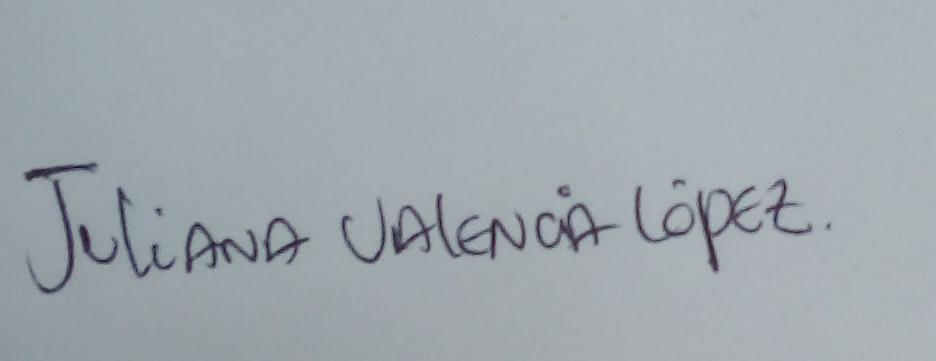 Juliana Valencia López.